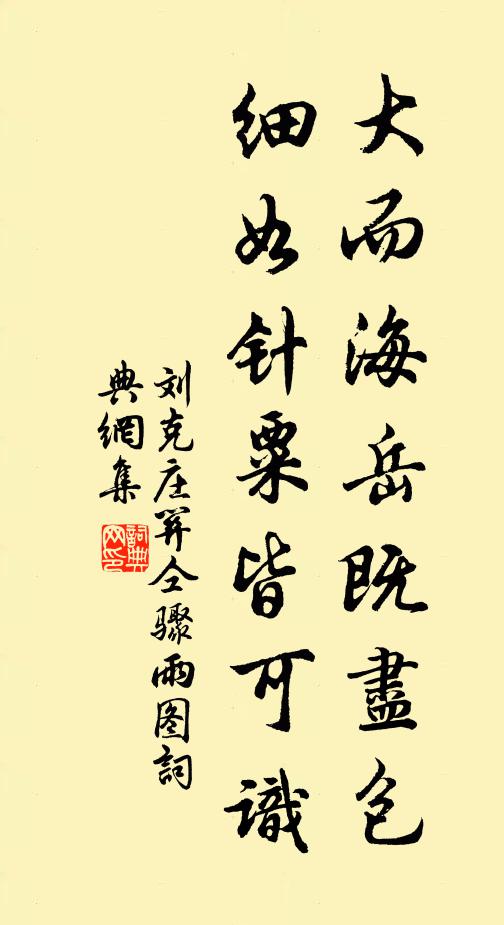 大而海岳既盡包
细如针粟皆可識
刘克庄䒳仝骤雨图詞
典網集
詞典网印